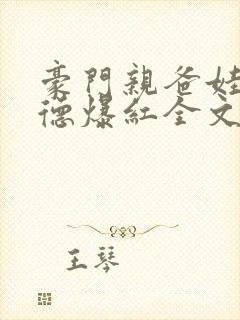 豪門親爸娃
德爆紅全文
王琴